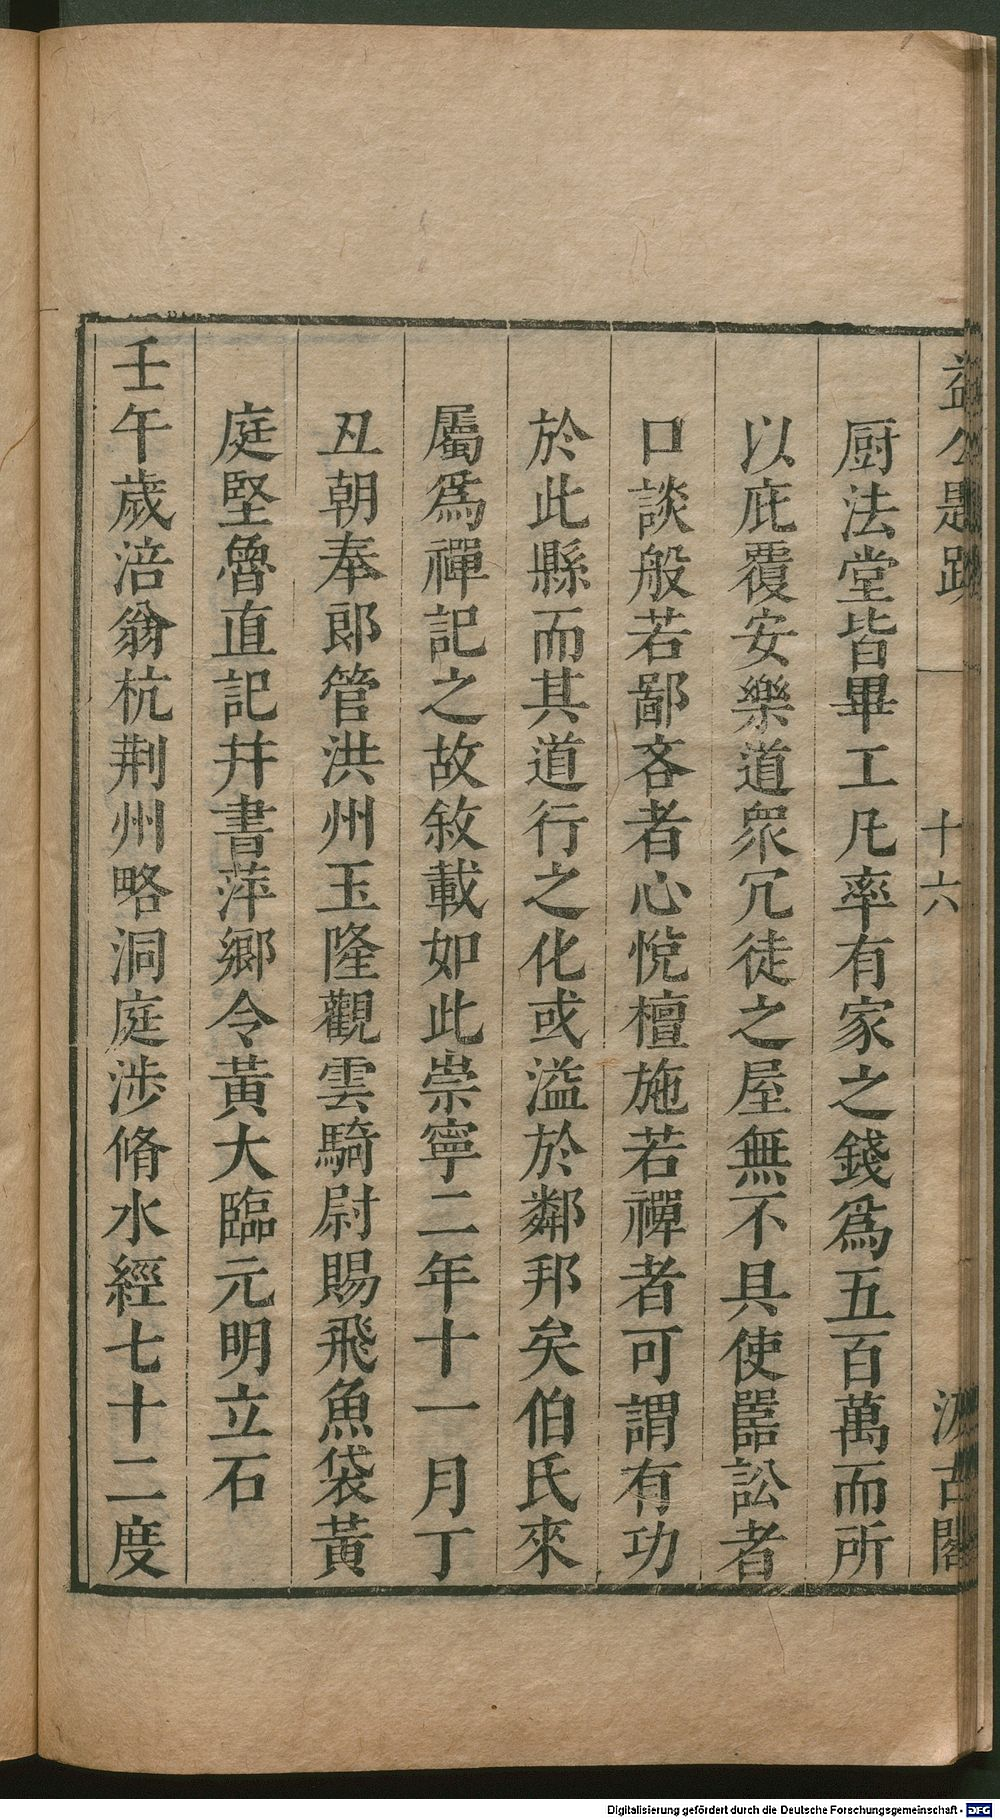 益公題跋 十六 汲古閣
厨法堂皆畢工凡率有家之錢爲五百萬而所
以庇覆安樂道眾冗徒之屋無不具使嚚訟者
口談般若鄙吝者心悅檀施若禪者可謂有功
於此縣而其道行之化或溢於鄰邦矣伯氏來
屬爲禪記之故敘載如此崇寧二年十一月丁
丑朝奉郎管洪州玉隆觀雲騎尉賜飛魚袋黃
庭堅魯直記并書萍鄉令黃大臨元明立石
壬午歲涪翁杭荆州略洞庭涉脩水經七十二度
Digitalisierung gefördert durch die Deutsche Forschungsgemeinschaft - DFG